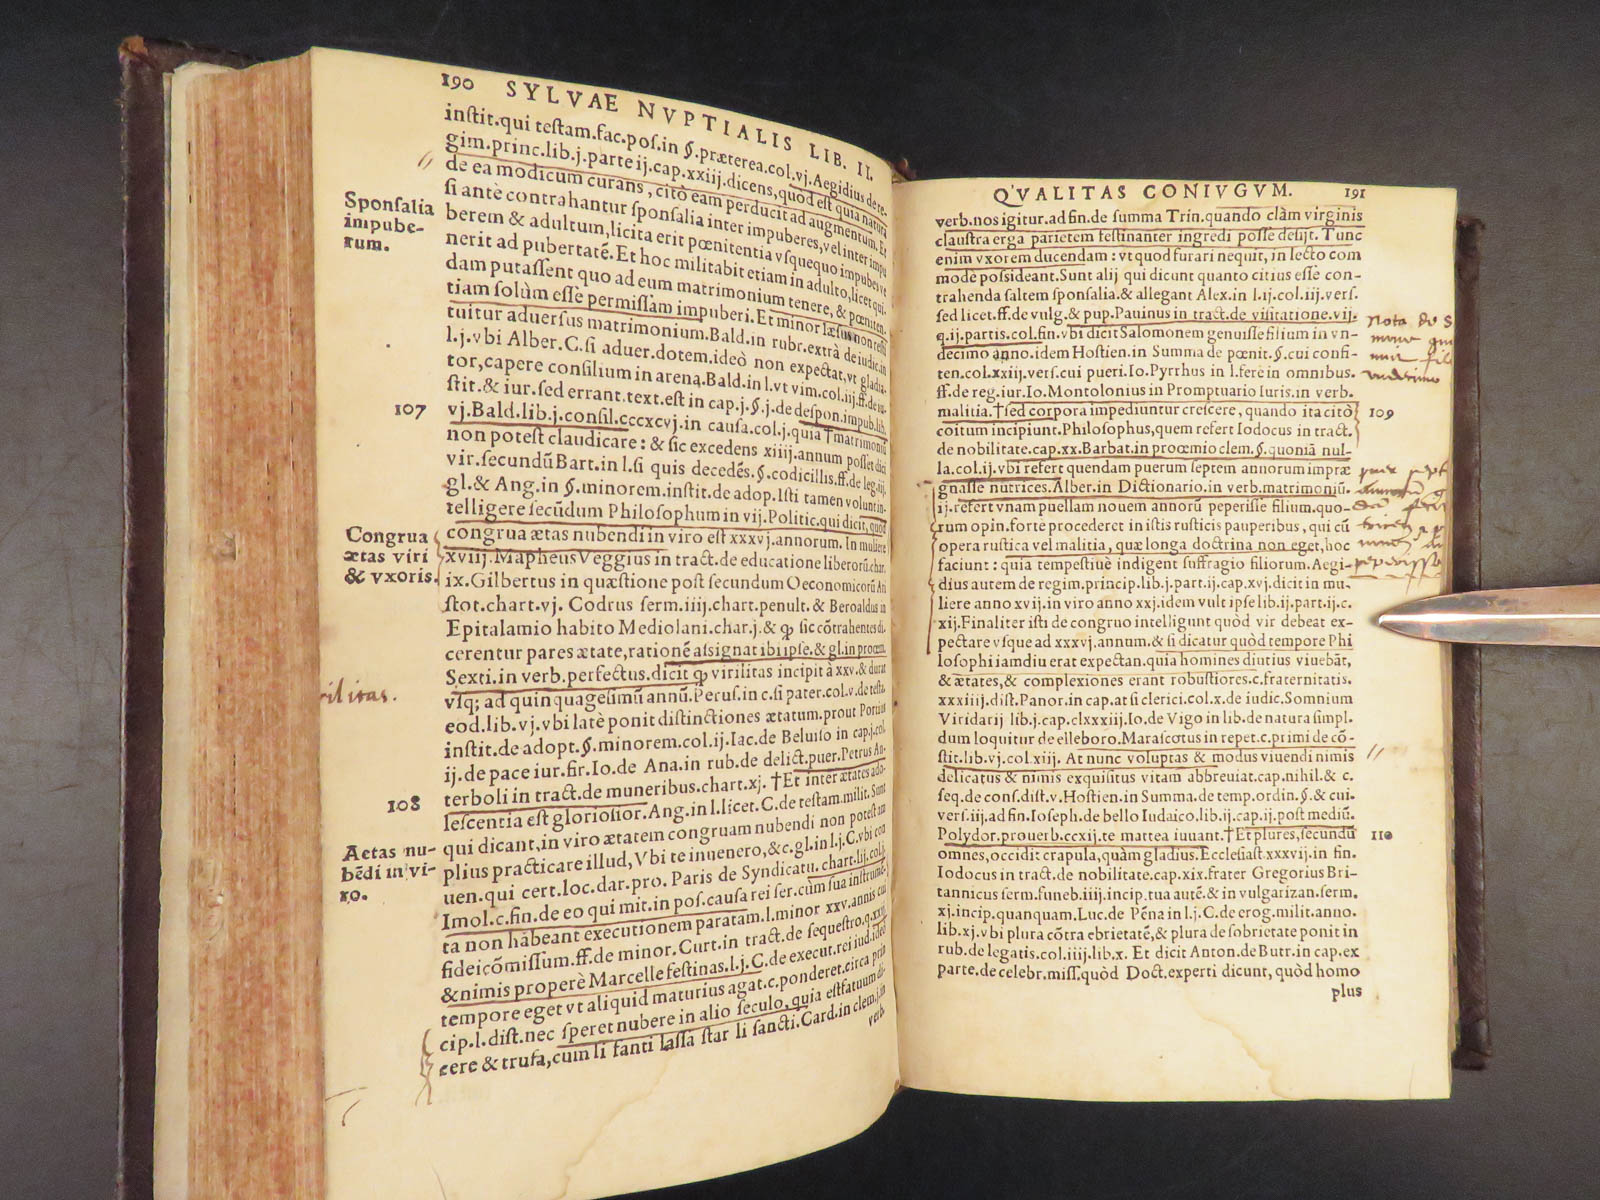 190 SYLVAE NVPTIALIS LIB. II.
instit.qui testam.fac.pos.in §.præterea.col.vj.Aegidius de re-
gim.princ.lib.j.parte ij.cap.xxiij.dicens,quòd est quia natura
de ea modicum curans, citò eam perducit ad augmentum. Et
Sponsalia
impube-
rum.
si antè contrahantur sponsalia inter impuberes,vel inter impu
berem & adultum,licita erit pœnitentia vsquequo impubes ve
nerit ad pubertatē.Et hoc militabit etiam in adulto,licet qui-
dam putassent quo ad eum matrimonium tenere, & pœniten-
tiam solùm esse permissam impuberi. Et minor læsus non resti
tuitur aduersus matrimonium.Bald.in rubr.extrà de iudic.in
l.j.vbi Alber.C.si aduer.dotem.ideò non expectat,vt gladia-
tor,capere consilium in arena.Bald.in l.vt vim.col.iij.ff.de iu-
stit.& iur.sed errant.text.est in cap.j.§.j.de despon.impub.lib.
107
vj.Bald.lib.j.consil.cccxcvj.in causa.col.j.quia †matrimoniū
non potest claudicare : & sic excedens xiiij.annum posset dici
vir.secundū Bart.in l.si quis decedēs.§.codicillis.ff.de leg.iij.
gl.& Ang.in §.minorem.instit.de adop.Isti tamen volunt in-
telligere secūdum Philosophum in vij.Politic.qui dicit,quod
Congrua
ætas viri
& vxoris.
congrua ætas nubendi in viro est xxxvj.annorum. In muliere
xviij.Mapheus Veggius in tract.de educatione liberorū.char.
ix.Gilbertus in quæstione post secundum Oeconomicorū Ari
stot.chart.vj. Codrus serm.iiij.chart.penult.& Beroaldus in
Epitalamio habito Mediolani.char.j.& ꝙ sic cōtrahentes di-
cerentur pares ætate,rationē assignat ibi ipse.& gl.in procem.
Sexti.in verb.perfectus.dicit ꝙ virilitas incipit à xxv.& durat
vsq; ad quinquagesimū annū.Perus.in c.si pater.col.v.de testa.
eod.lib.vj.vbi latè ponit distinctiones ætatum.prout Portius
instit.de adopt.§.minorem.col.ij.Iac.de Beluiso in cap.j.col.
ij.de pace iur.fir.Io.de Ana.in rub.de delict.puer.Petrus An-
108
terboli in tract.de muneribus.chart.xj. †Et inter ætates ado-
lescentia est gloriosior.Ang.in l.licet.C.de testam.milit. Sunt
Aetas nu-
bēdi in vi-
ro.
qui dicant,in viro ætatem congruam nubendi non potest am
plius practicare illud,Vbi te inuenero,&c.gl.in l.j.C.vbi con
uen.qui cert.loc.dar.pro. Paris de Syndicatu.chart.lij.col.j.
Imol.c.fin.de eo qui mit.in pos.causa rei ser.cùm sua instrume-
ta non habeant executionem paratam.l.minor xxv.annis cui
fideicōmissum.ff.de minor.Curt.in tract.de sequestro.q.xxij.
& nimis properè Marcelle festinas.l.j.C.de execut.rei iud.ideò
tempore eget vt aliquid maturius agat.c.ponderet.circa prin
cip.l.dist.nec speret nubere in alio seculo,quia est fatuum di-
cere & trufa,cum li fanti lassa star li sancti.Card.in clem.j.in
verb.
QVALITAS CONIVGVM. 191
verb.nos igitur.ad fin.de summa Trin.quando clàm virginis
claustra erga parietem festinanter ingredi posse desijt. Tunc
enim vxorem ducendam : vt quod furari nequit, in lecto com
modè possideant.Sunt alij qui dicunt quanto citius esse con-
trahenda saltem sponsalia.& allegant Alex.in l.ij.col.iij.vers.
sed licet.ff.de vulg.& pup.Pauinus in tract.de visitatione.vij.
q.ij.partis.col.fin.vbi dicit Salomonem genuisse filium in vn-
decimo anno.idem Hostien.in Summa de pœnit.§.cui confi-
ten.col.xxij.vers.cui pueri.Io.Pyrrhus in l.ferè in omnibus.
ff.de reg.iur.Io.Montolonius in Promptuario Iuris.in verb.
malitia.†sed corpora impediuntur crescere, quando ita citò 109
coitum incipiunt.Philosophus,quem refert Iodocus in tract.
de nobilitate.cap.xx.Barbat.in procemio clem.§.quoniā nul-
la.col.ij.vbi refert quendam puerum septem annorum impræ
gnasse nutrices.Alber.in Dictionario.in verb.matrimoniū.
ij.refert vnam puellam nouem annorū peperisse filium.quo-
rum opin.fortè procederet in istis rusticis pauperibus, qui cū
opera rustica vel malitia, quæ longa doctrina non eget,hoc
faciunt : quia tempestiuè indigent suffragio filiorum.Aegi-
dius autem de regim.princip.lib.j.part.ij.cap.xvj.dicit in mu-
liere anno xvij.in viro anno xxj.idem vult ipse lib.ij.part.ij.c.
xij.Finaliter isti de congruo intelligunt quòd vir debeat ex-
pectare vsque ad xxxvj.annum.& si dicatur quòd tempore Phi
losophi iamdiu erat expectan.quia homines diutius viuebāt,
& ætates, & complexiones erant robustiores.c.fraternitatis.
xxxiiij.dist.Panor.in cap.at si clerici.col.x.de iudic.Somnium
Viridarij lib.j.cap.clxxxiij.Io.de Vigo in lib.de natura simpl.
dum loquitur de elleboro.Marascotus in repet.c.primi de cō-
stit.lib.vj.col.xiij. At nunc voluptas & modus viuendi nimis
delicatus & nimis exquisitus vitam abbreuiat.cap.nihil.& c.
seq.de cons.dist.v.Hostien.in Summa.de temp.ordin.§.& cui.
vers.iij.ad fin.Ioseph.de bello Iudaico.lib.ij.cap.ij.post mediū.
Polydor.prouerb.ccxij.te mattea iuuant.†Et plures,secundū 110
omnes,occidit crapula,quàm gladius.Ecclesiast.xxxvij.in fin.
Iodocus in tract.de nobilitate.cap.xix.frater Gregorius Bri-
tannicus serm.funeb.iiij.incip.tua autē.& in vulgarizan.serm.
xj.incip.quanquam.Luc.de Pēna in l.j.C.de erog.milit.anno.
lib.xj.vbi plura cōtra ebrietatē,& plura de sobrietate ponit in
rub.de legatis.col.iiij.lib.x. Et dicit Anton.de Butr.in cap.ex
parte.de celebr.miss.quòd Doct.experti dicunt, quòd homo
plus